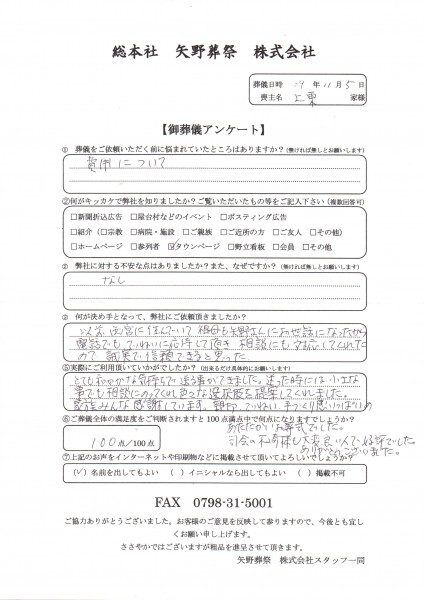 総本社 矢野葬祭 株式会社
葬儀日時 29年11月5日
喪主名 上東 家様
【御葬儀アンケート】
① 葬儀をご依頼いただく前に悩まれていたところはありますか?(無ければ無しとお願いします)
費用について
②何がキッカケで弊社を知りましたか?ご覧いただいたもの等をご記入下さい(複数回答可)
□新聞折込広告 □屋台村などのイベント □ポスティング広告
□紹介(□宗教 □病院・施設 □ご親族 □ご近所の方 □ご友人 □その他)
□ホームページ □参列者 ☑タウンページ □野立看板 □会員 □その他
③ 弊社に対する不安な点はありましたか?また、なぜですか?(無ければ無しとお願いします)
なし
④ 何が決め手となって、弊社にご依頼頂きましたか?
以前西宮に住んでいて祖母も矢野さんにお世話になったから
電話でもていねいに応待して頂き 相談にも対応してくれた
ので 誠実で信頼できると思った
⑤実際にご利用頂いていかがでしたか?(出来るだけ具体的にお願いします)
とてもおだやかな気持ちで送る事ができました。迷った時には小さな
事でも相談にのってくれ色々な選択肢を提案してくれました。
家族みんな感謝しています。親切、ていねい、手づくり感いっぱいの
あたたかいお葬式でした。
⑥ご葬儀全体の満足度をご判断されますと100点満点中で何点になりますでしょうか?
100点/100点
司会の
大変良い
でした
ありがとうございました。
⑦上記のお声をインターネットや印刷物などに掲載させて頂いてよろしいでしょうか?
(✓)名前を出してもよい ( )イニシャルなら出してもよい ( )掲載不可
FAX 0798-31-5001
ご協力ありがとうございました。お客様のご意見を反映して参りますので、今後とも宜し
くお願い申し上げます。
ささやかではございますが粗品を進呈させて頂きます。
矢野葬祭 株式会社スタッフ一同